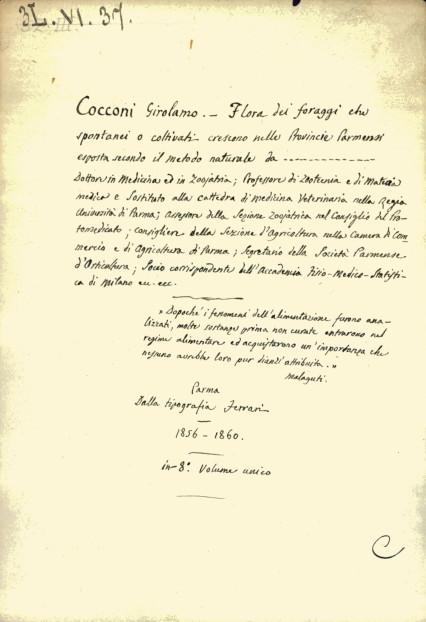 3L. VI. 37.
Cocconi Girolamo. – Flora dei foraggi che
spontanei o coltivati crescono nelle Provincie Parmensi
esposta secondo il metodo naturale da --------------
Dottore in Medicina ed in Zoojatria; Professore di Zootecnia e di Materia
medica e Sostituto alla cattedra di Medicina Veterinaria nella Regia
Università di Parma; assessore della Sezione Zoojatrica nel Consiglio del Pro-
tomedicato; consigliere della Sezione d'Agricoltura nella Camera di Com
mercio e di Agricoltura di Parma; Segretario della Società Parmense
d'Orticoltura; Socio corrispondente dell'Accademia Fisio-Medico-Statisti-
ca di Milano ecc. ecc.
» Dopochè i fenomeni dell'alimentazione furono ana-
lizzati, molte sostanze prima non curate entrarono nel
regime alimentare ed acquistarono un'importanza che
nessuno avrebbe loro pur dianzi attribuita. »
Malaguti.
Parma
Dalla tipografia Ferrari
1856 – 1860.
in-8.° Volume unico
C